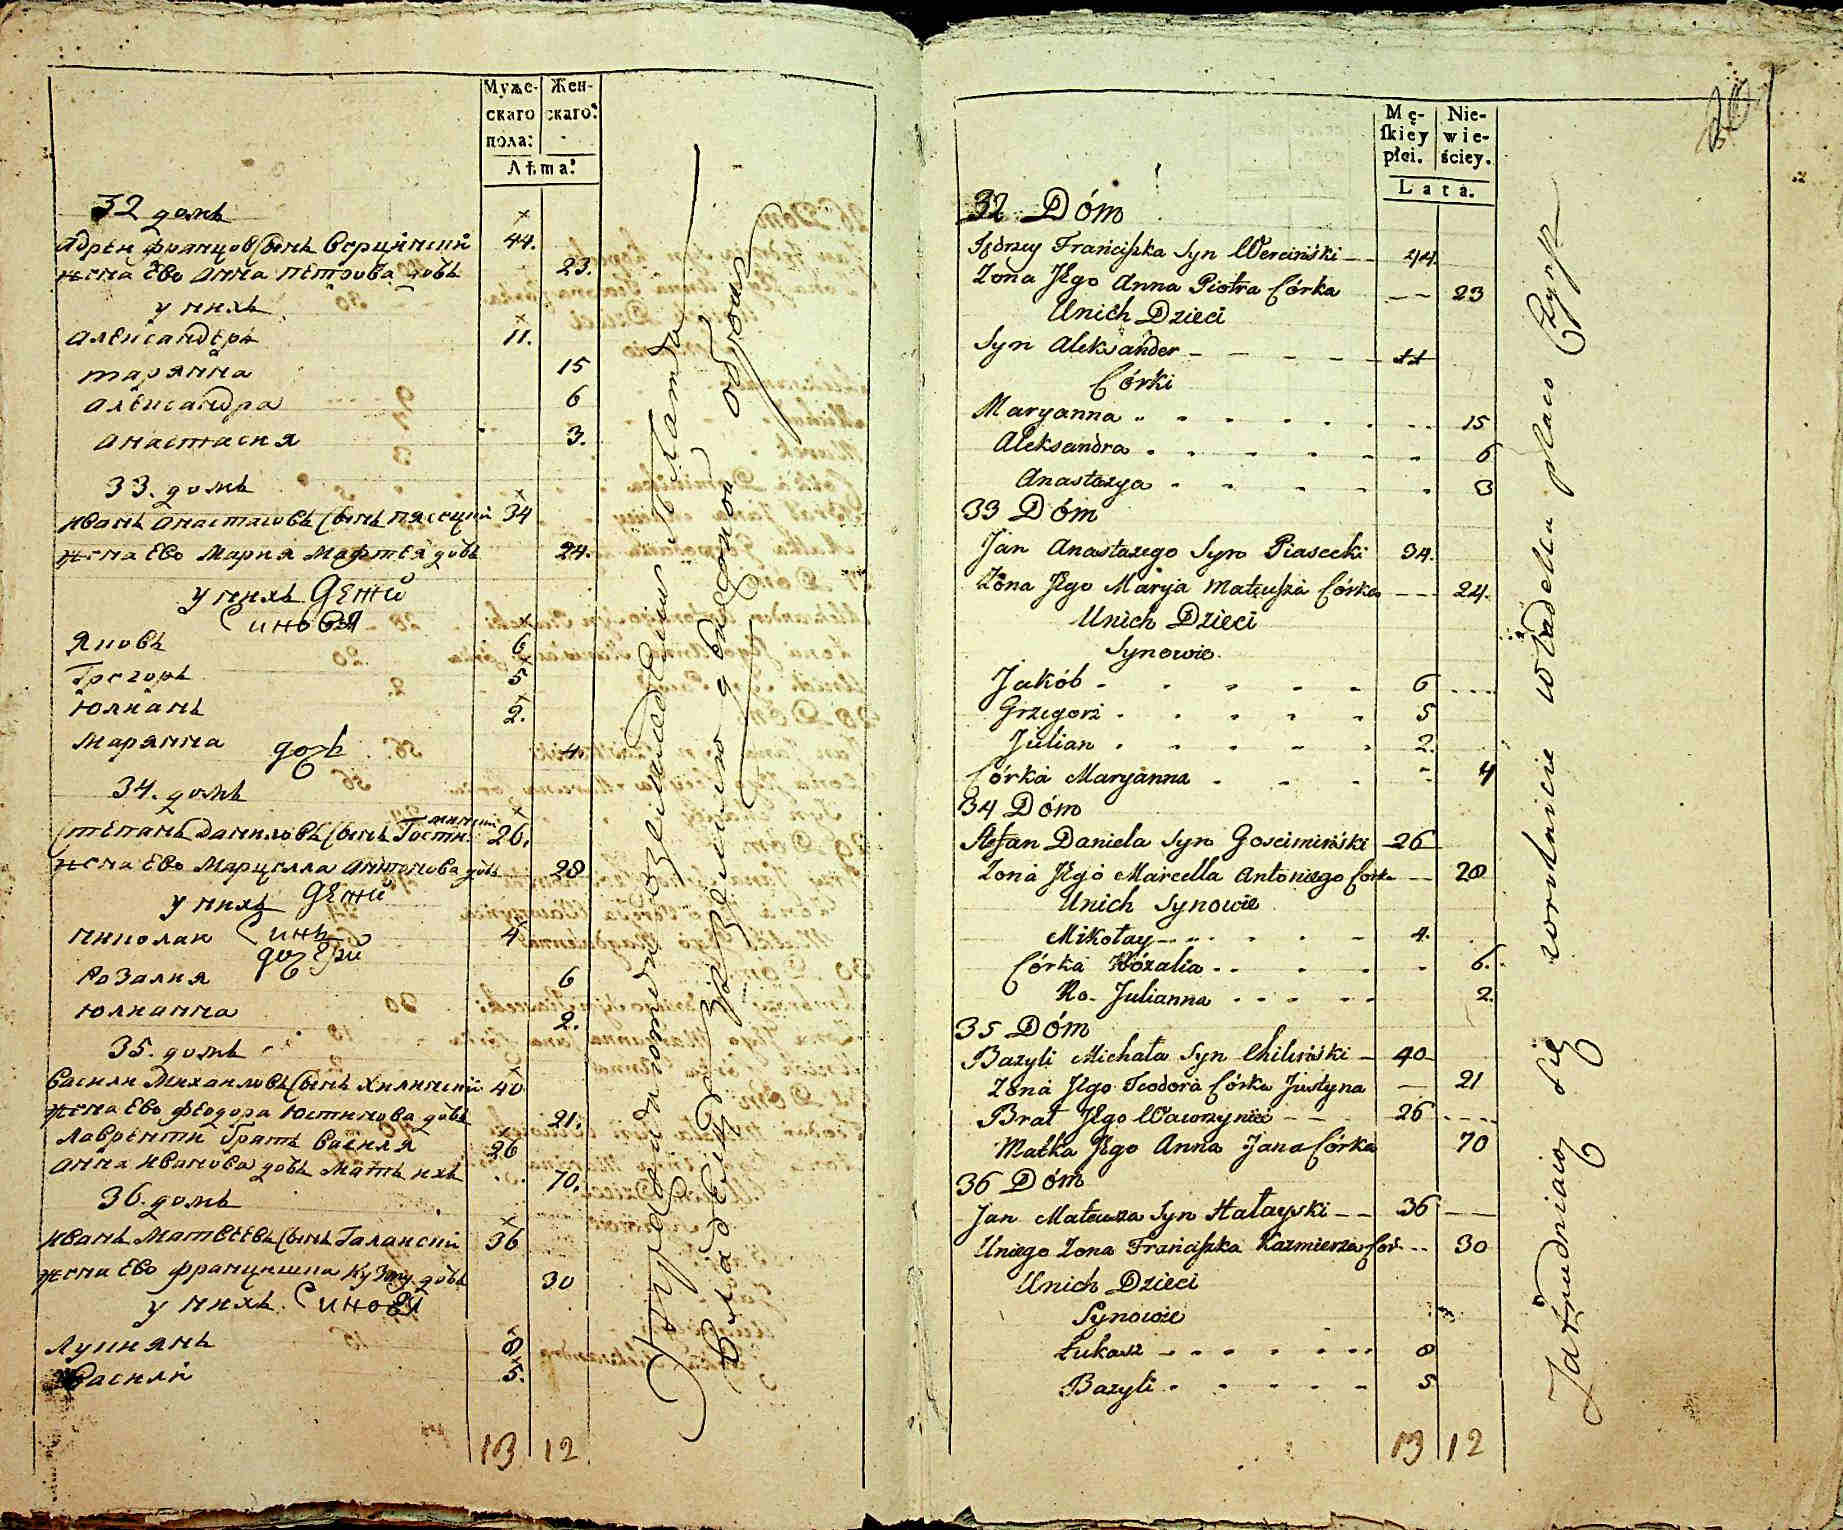 Муже-
скаго
пола:
Жен-
скаго:
Лѣта:
32 домъ
Адрей францов Сынъ Верцинский 44.
жена Ево Анна Петрова дочь 23.
у нихъ
Александеръ 11.
Марянна 15
Александра 6
Анастасия 3.
33. домъ
Иванъ Анастасовъ Сынъ Пясецкий 34
жена Ево Мария Мафтея дочь 24.
у нихъ Дети
Синовя
Яковъ 6
Грегоръ 5
Юлианъ 2.
Марянна дочь 4.
34. домъ
Степанъ Даниловъ Сынъ Гостиминский 26.
жена Ево Марцелла Антонова дочь 28
у нихъ Дети
Николай Синъ 4
дочери
Розалия 6
Юлианна 2.
35. домъ
Василий Михайловъ Сынъ Хилинский 40
жена Ево Феодора Юстинова дочь 21.
Лаврентий братъ Василя 26
Анна Иванова дочь Мать ихъ 70.
36. домъ
Иванъ Матвеевъ Сынъ Галайский 36
жена Ево францишка Кузму дочь 30
у нихъ Синовя
Лукиянъ 8
Василий 5.
13 12
Владеида землею
Mę-
ſkiey
płci.
Nie-
wie-
ściey.
Lata.
32 Dóm
Jędrzey Franciſzka Syn Werciński 44.
Zona Jego Anna Piotra Córka 23
Unich Dzieci
Syn Aleksander 11
Córki
Maryanna 15
Aleksandra 6
Anastazya 3
33 Dóm
Jan Anastazego Syn Piasecki 34.
Zona Jego Marya Mateuſza Córka 24.
Unich Dzieci
Synowie
Jakób 6
Grzegorz 5
Julian 2.
Córka Maryanna 4
34 Dóm
Stefan Daniela Syn Gosciminski 26
Zona Jego Marcella Antoniego Corka 28
Unich Synowie
Mikołay 4.
Córka Rózalia 6.
Ko. Julianna 2.
35 Dóm
Bazyli Michała Syn Chiliński 40
Zona Jego Teodora Córka Justyna 21
Brat Jego Wawrzyniec 26
Matka Jego Anna Jana Córka 70
36 Dóm
Jan Mateusza Syn Hałayski 36
Uniego Zona Franciſzka Kazmierza Cór. 30
Unich Dzieci
Synowie
Łukasz 8
Bazyli 5
13 12
Zatrudniaią się Władellu placo Czynſz